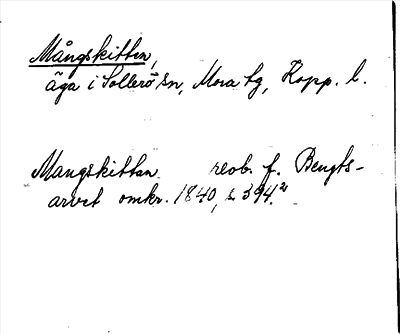 Mångskittan,
äga i Sollerö sn, Mora tg, Kopp. l.
Mangskittan reob. f. Bengts-
arvet omkr. 1840, s. 394.